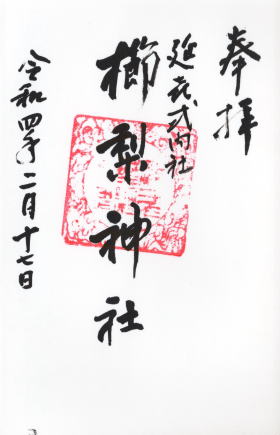 奉拝
延喜式内社
櫛梨神社
令和四年二月十七日